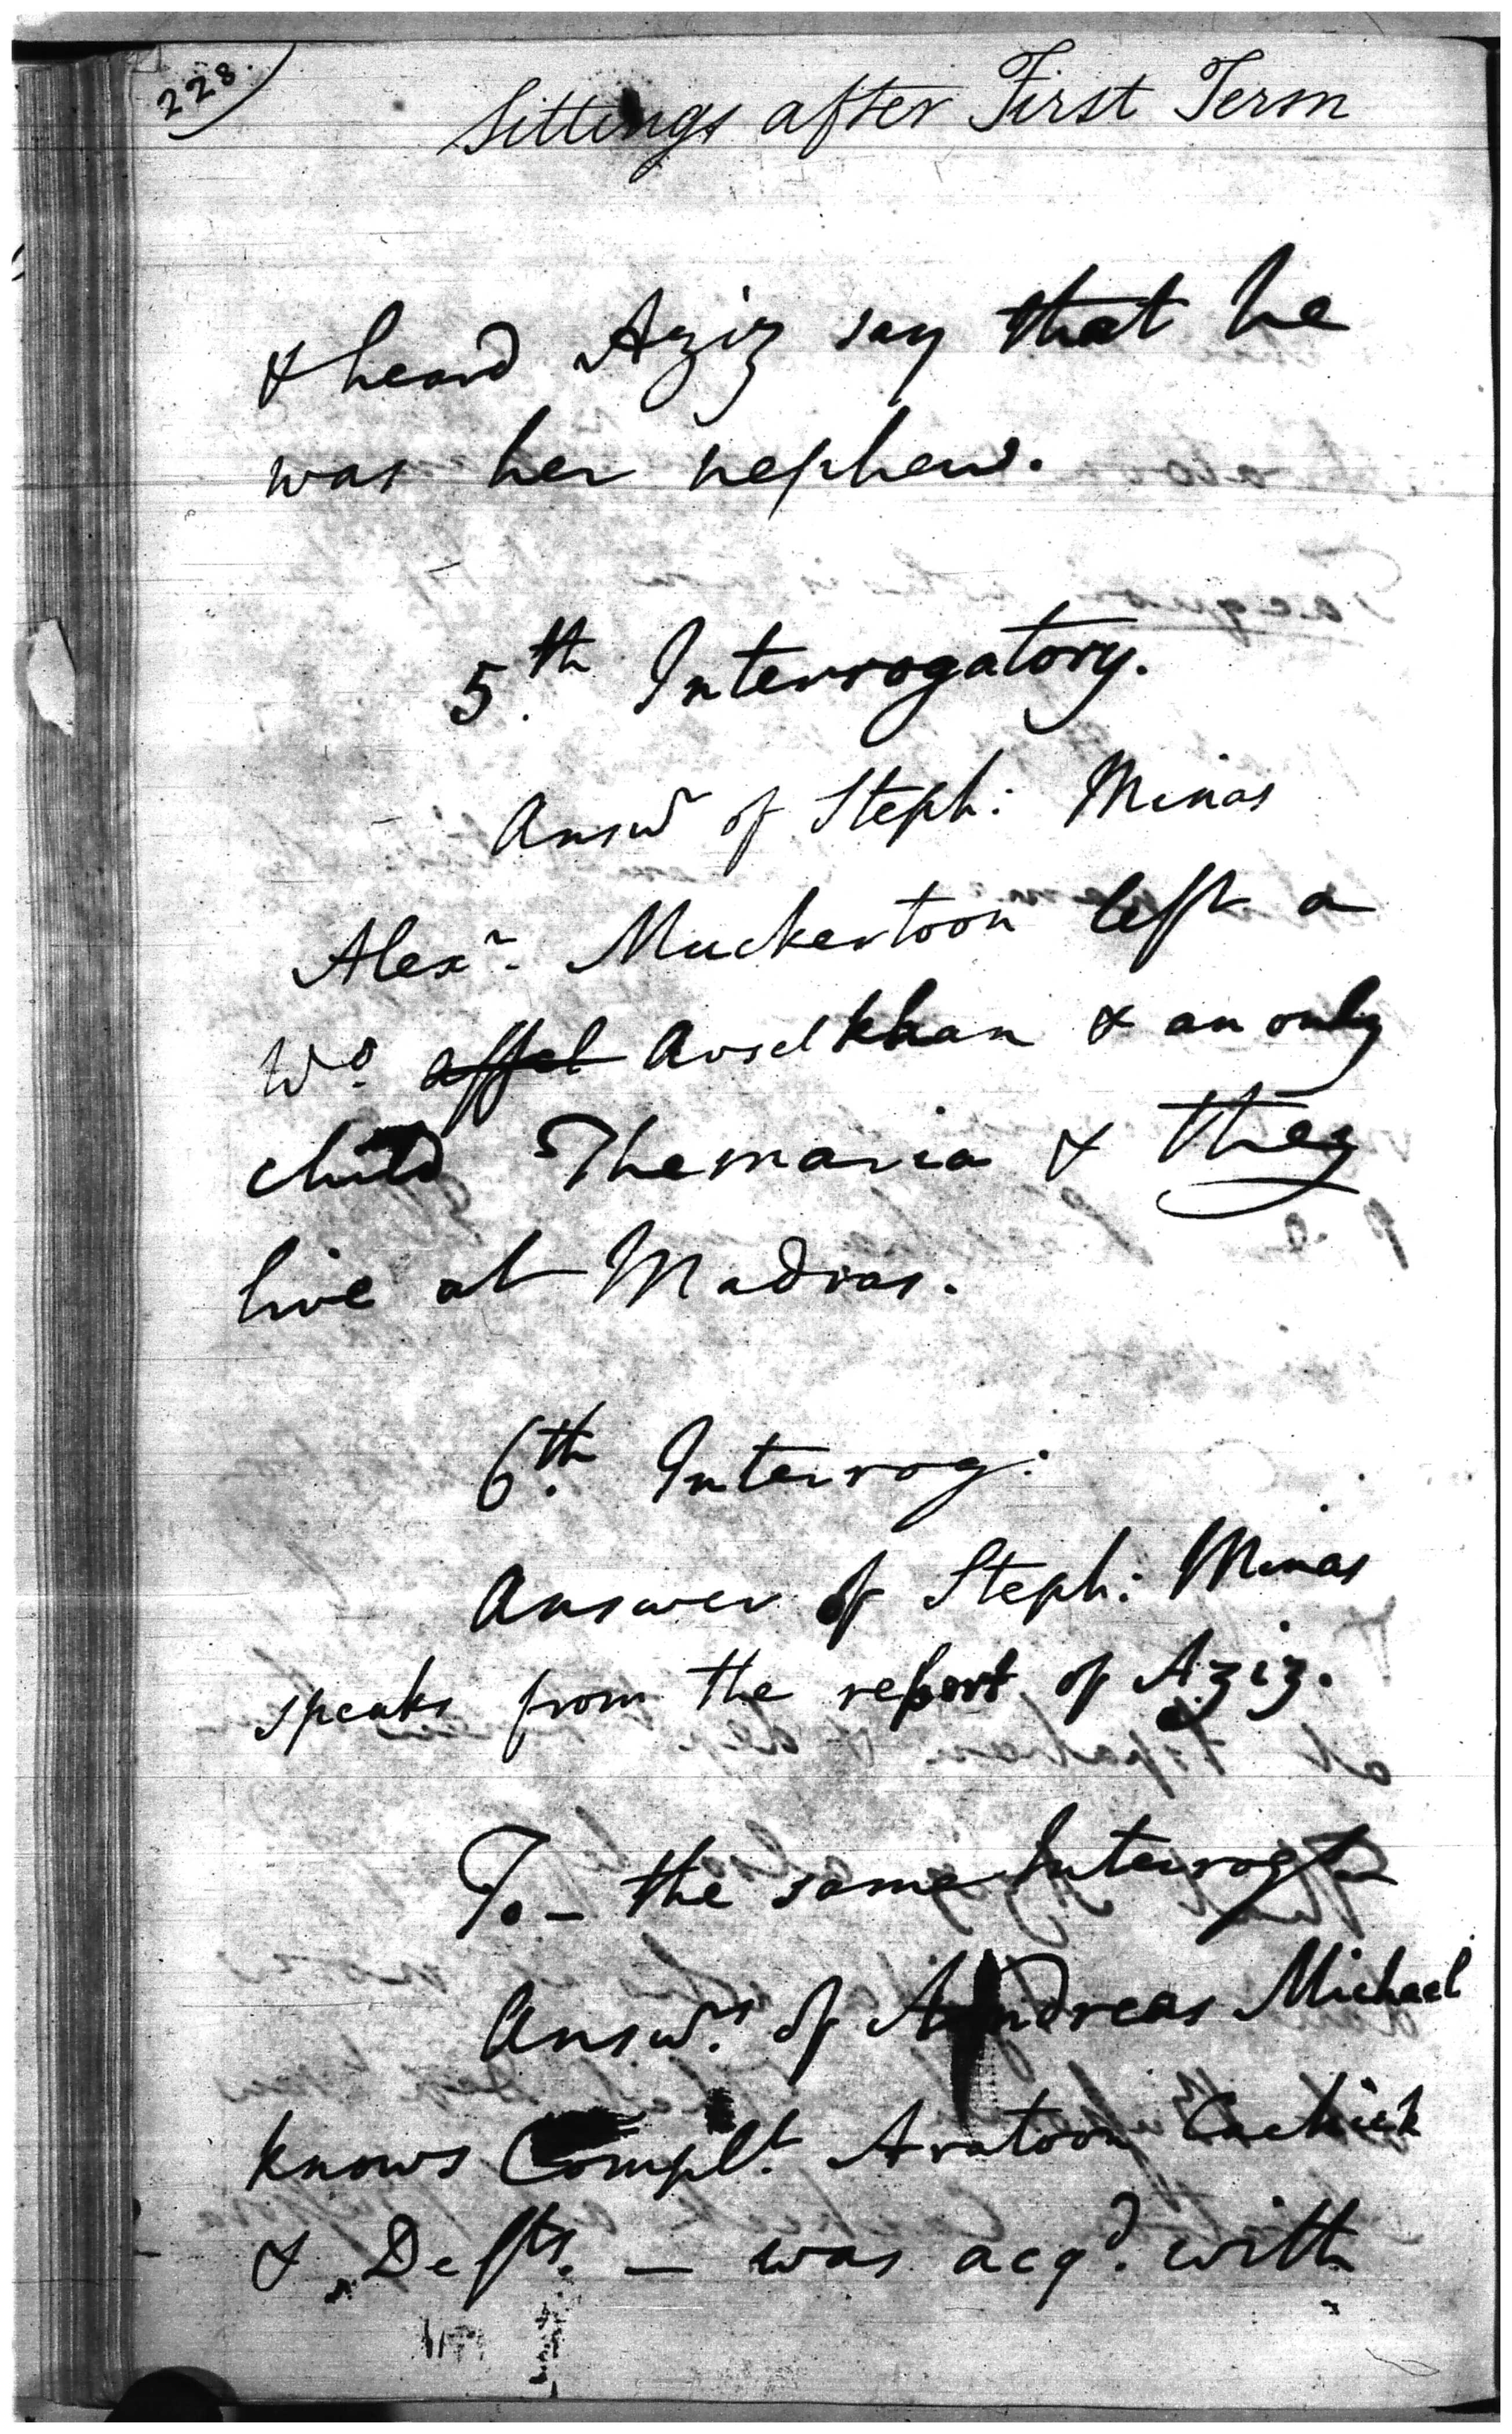 228.
Sittings after First Term
& heard Aziz say that he
was her nephew.
5th. Interrogatory.
Answr of Steph: Minas
Alexr. Muckertoon left a
Wo. Avselkhan & an only
child Themaria & they
live at Madras.
6th. Interrog:
Answer of Steph: Minas
speaks from the report of Aziz.
To - the same Interrog
Answrs. of Andreas Michael
knows Complt. Aratoon Cachick
& Defts. — was acqd. with